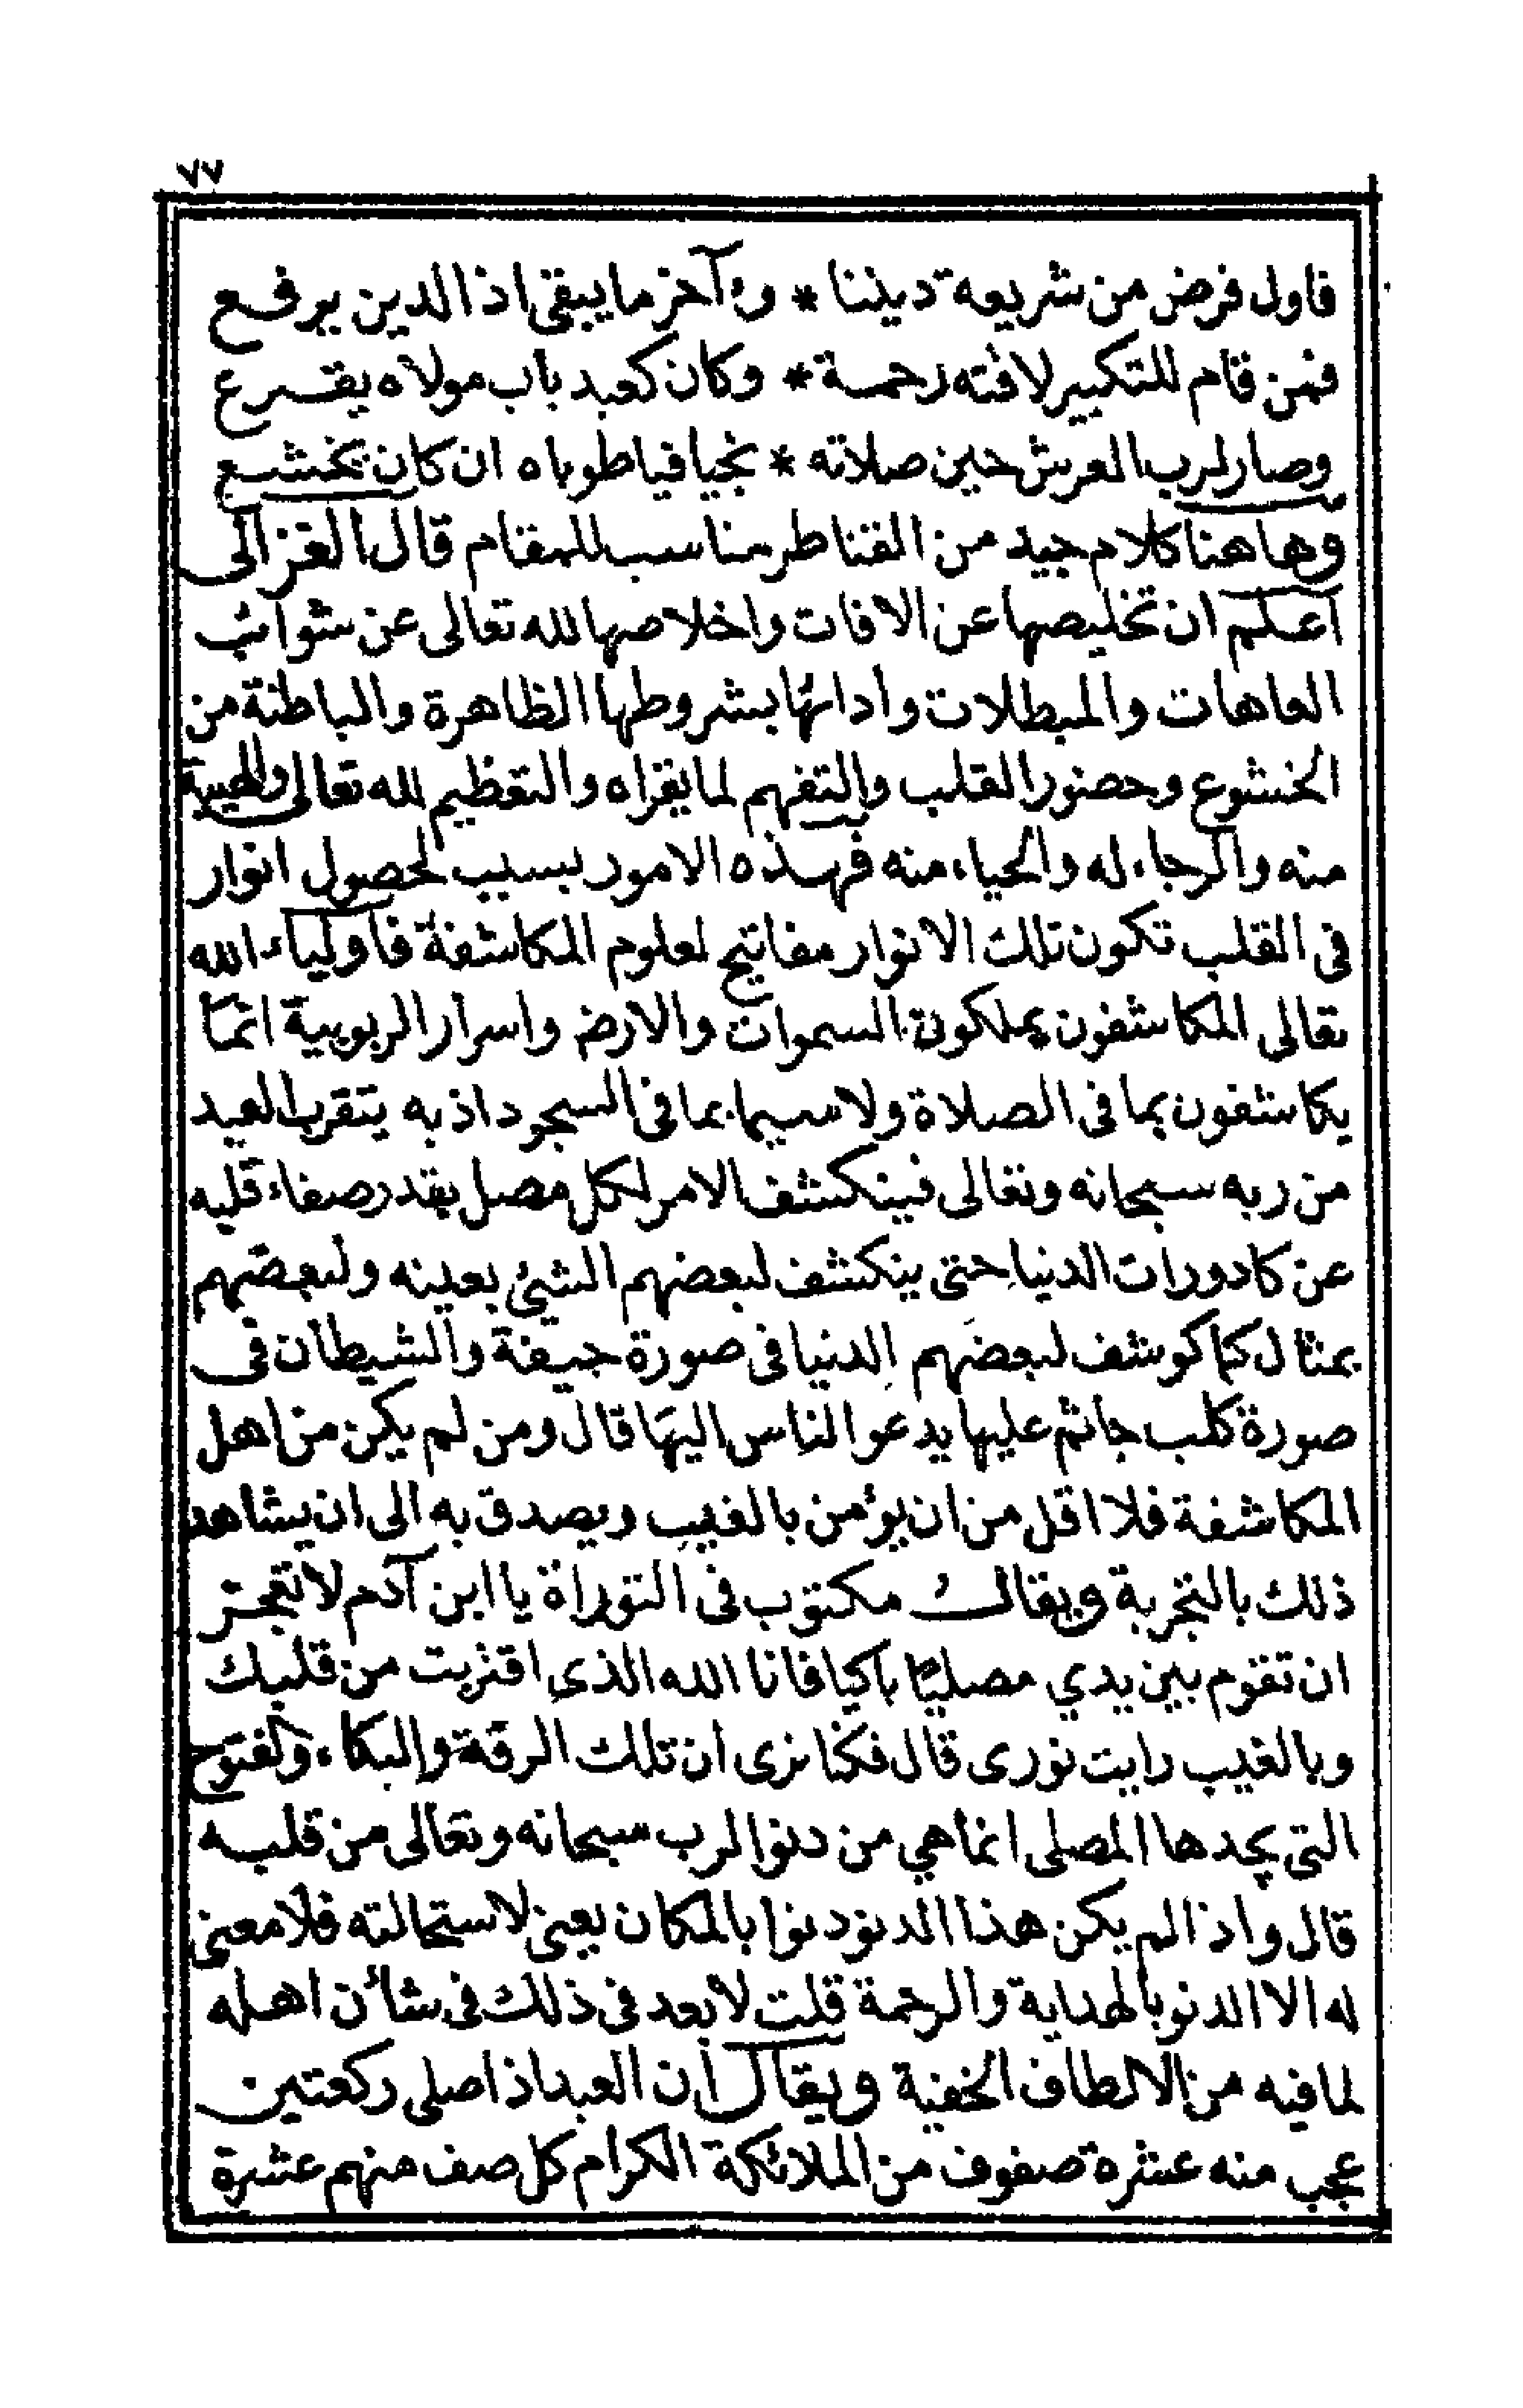 ٧٧
فاول فرض من شريعة ديننا * وآخر ما يبقى اذا الدين يرفع
فمن قام للتكبير لاقته رحمة * وكان كعبد باب مولاه يقرع
وصار لرب العرش حين صلاته * نجيا فياطوباه ان كان يخشع
وهاهنا كلام جيد من القناطر مناسب للمقام قال الغزالى
اعلم ان تخليصها عن الافات واخلاصها لله تعالى عن شوائب
العاهات والمبطلات وادائها بشروطها الظاهرة والباطنة من
الخشوع وحضور القلب والتفهم لما يقراه والتعظيم لله تعالى والهيبة
منه والرجاء له والحياء منه فهذه الامور بسبب لحصول انوار
فى القلب تكون تلك الانوار مفاتيح لعلوم المكاشفة فاولياء الله
تعالى المكاشفون بملكوت السموات والارض واسرار الربوبية انما
يكاشفون بما فى الصلاة ولاسيما بما فى السجود اذ به يتقرب العبد
من ربه سبحانه وتعالى فينكشف الامر لكل مصل بقدر صفاء قلبه
عن كادورات الدنيا حتى ينكشف لبعضهم الشئ بعينه ولبعضهم
بمثال كما كوشف لبعضهم الدنيا فى صورة جيفة والشيطان فى
صورة كلب جاثم عليها يدعو الناس اليها قال ومن لم يكن من اهل
المكاشفة فلا اقل من ان يؤمن بالغيب ويصدق به الى ان يشاهد
ذلك بالتجربة ويقال مكتوب فى التوراة يا ابن آدم لا تعجز
ان تقوم بين يدي مصليا باكيا فانا الله الذى اقتربت من قلبك
وبالغيب رايت نورى قال فكنا نرى ان تلك الرقة والبكاء والفتوح
التى يجدها المصلى انما هي من دنو الرب سبحانه وتعالى من قلبه
قال واذا لم يكن هذا الدنو دنوا بالمكان يعنى لاستحالته فلا معنى
له الا الدنو بالهداية والرحمة قلت لا بعد فى ذلك فى شأن اهله
لما فيه من الالطاف الخفية ويقال ان العبد اذا صلى ركعتين
عجب منه عشرة صفوف من الملائكة الكرام كل صف منهم عشرة